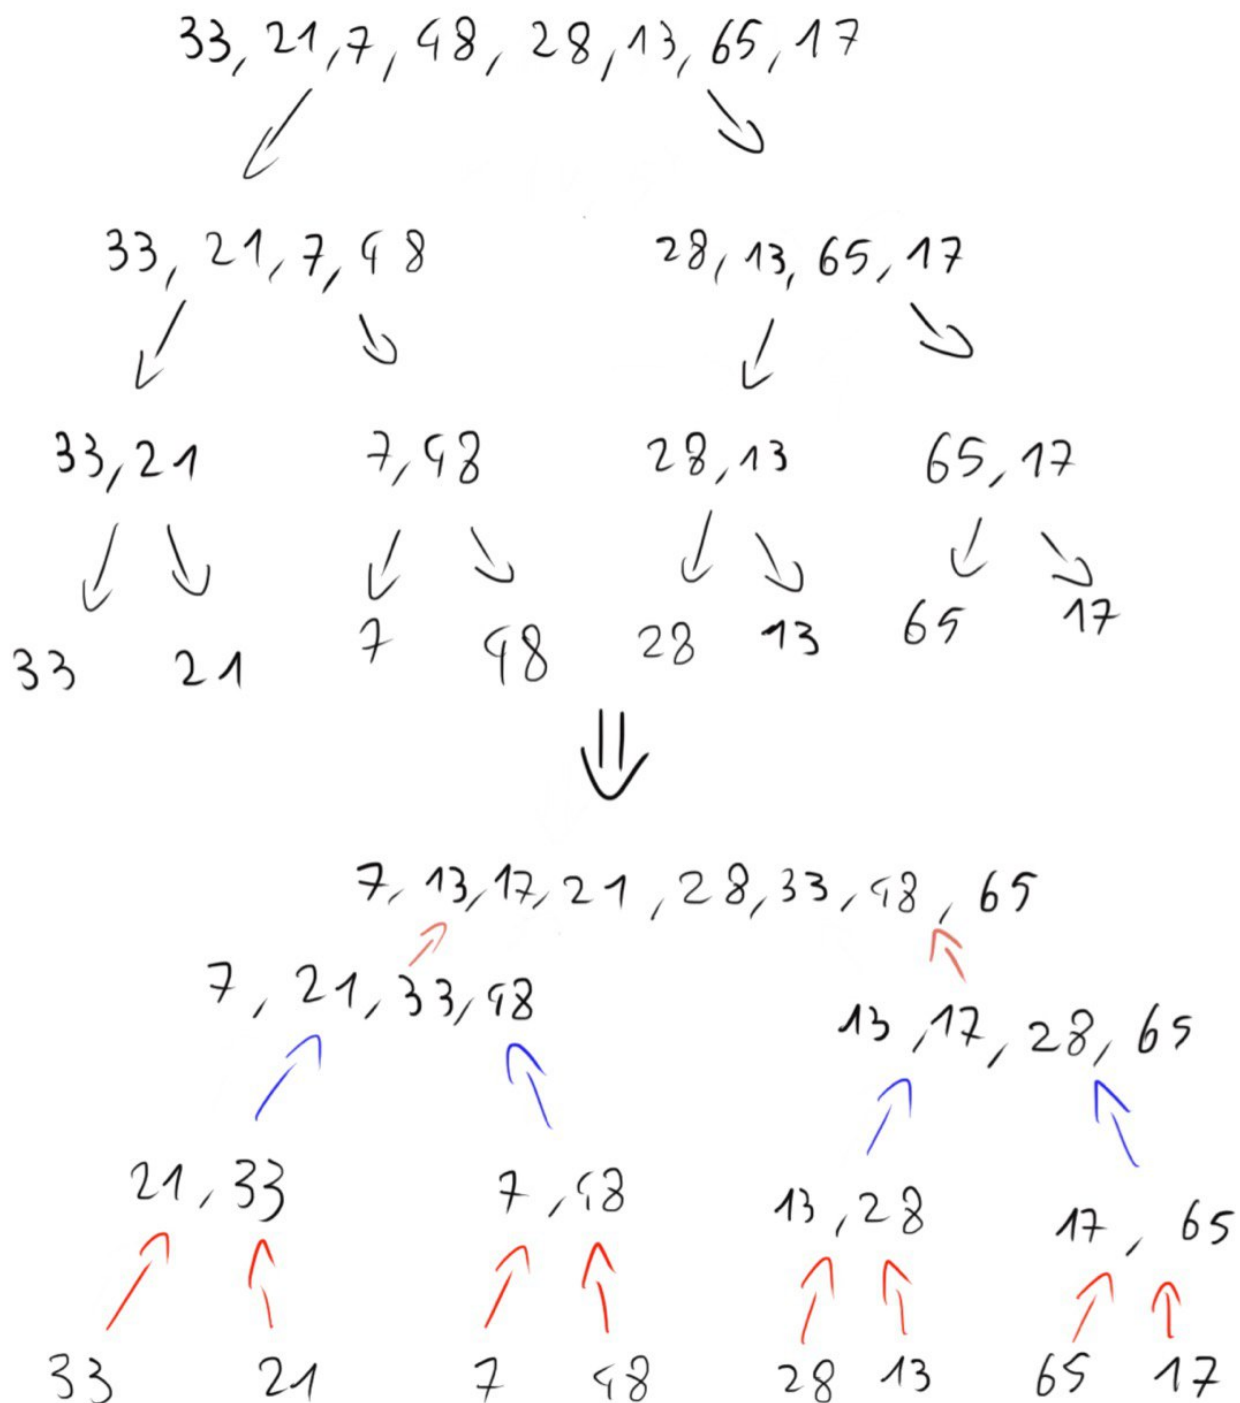 33, 21, 7, 48, 28, 13, 65, 17
33, 21, 7, 48
28, 13, 65, 17
33, 21
7, 48
28, 13
65, 17
33
21
7
48
28
13
65
17
7, 13, 17, 21, 28, 33, 48, 65
7, 21, 33, 48
13, 17, 28, 65
21, 33
7, 48
13, 28
17, 65
33
21
7
48
28
13
65
17